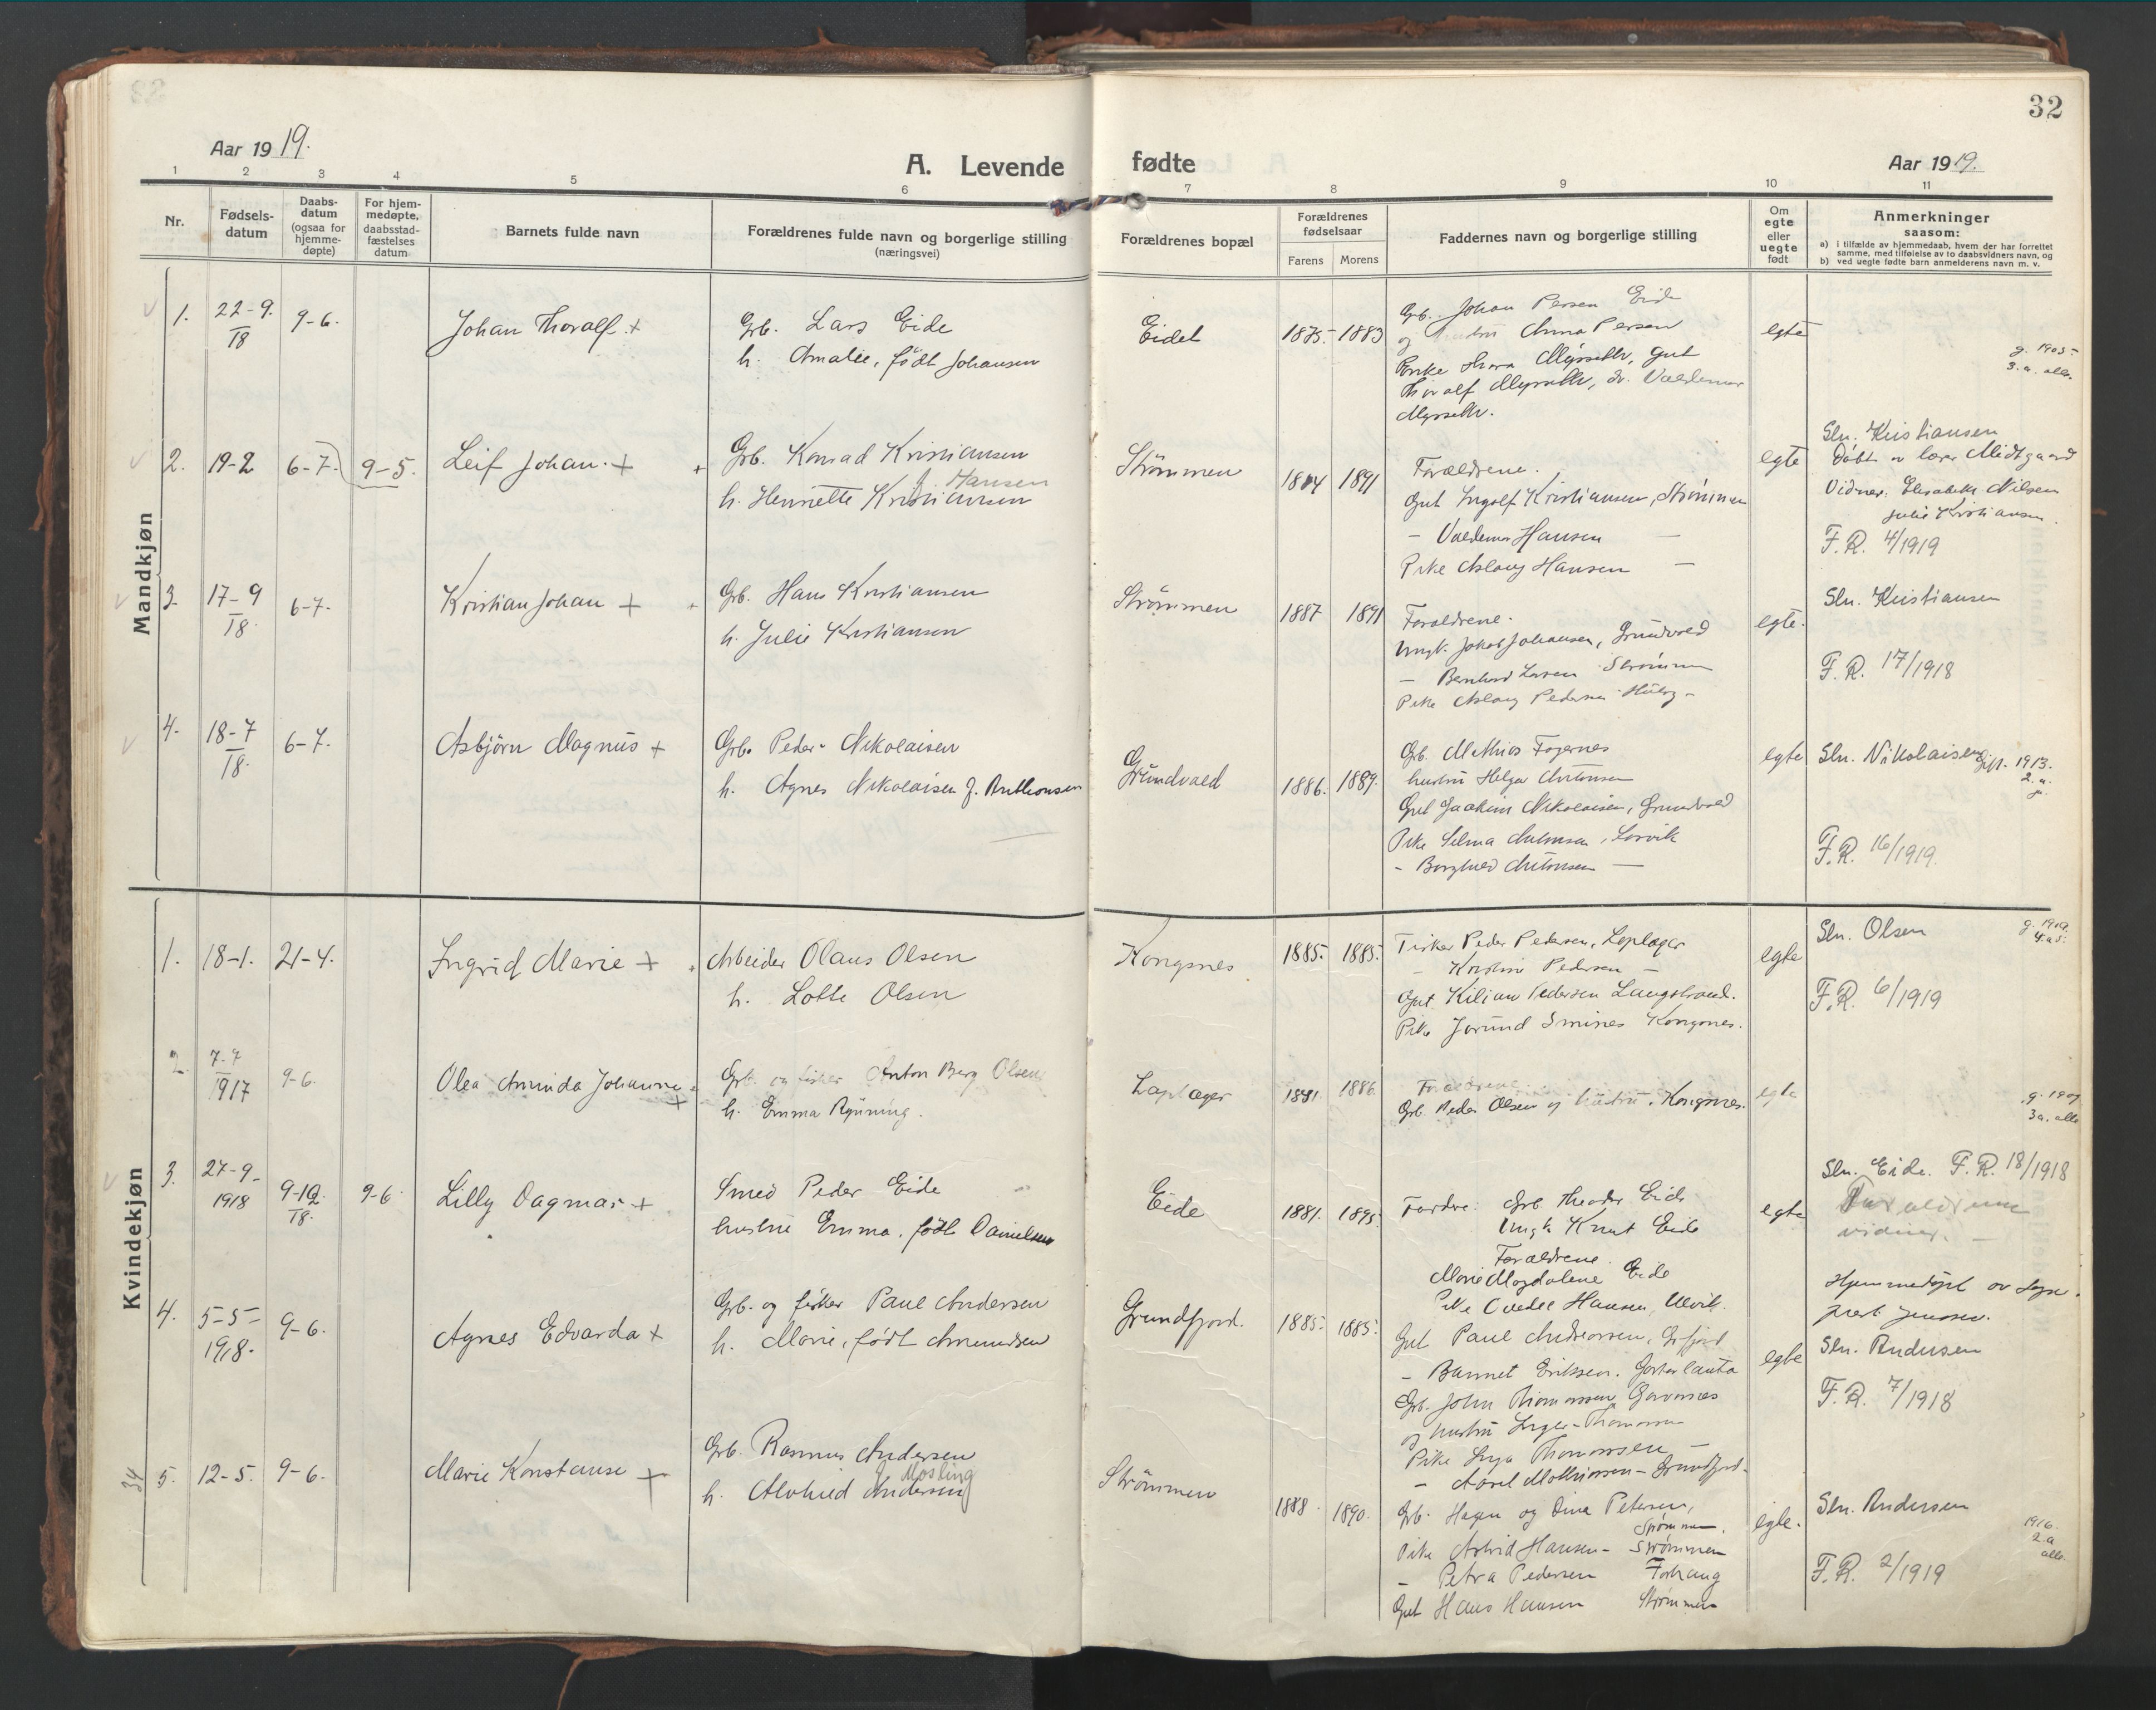 32
Aar 1919.
A. Levende fødte
Aar 1919.
1 2 3 4 5 6 7 8 9 10 11
Nr.
Fødsels-
datum
Daabs-
datum
(ogsaa for
hjemme-
døpte)
For hjem-
medøpte,
daabsstad-
fæstelses
datum
Barnets fulde navn
Forældrenes fulde navn og borgerlige stilling
(næringsvei)
Forældrenes bopæl
Forældrenes
fødselsaar
Farens Morens
Faddernes navn og borgerlige stilling
Om
egte
eller
uegte
født
Anmerkninger
saasom:
a) i tilfælde av hjemmedaab, hvem der har forrettet
samme, med tilføielse av to daabsvidners navn, og
b) ved uegte fødte barn anmelderens navn m. v.
Mandkjøn
1. 22-9. 18 9-6. Johan Thoralf +
Grb. Lars Eide
h. Amalie, født Johansen
Eidet 1875- 1883
Grb. Johan Persen Eide
og Anna Persen
Thoralf
egte
g. 1905-
3. a. alle.
2. 19-2 6-7. 9-5. Leif Johan. +
Grb. Konrad Kristiansen
f. Hansen
h. Henriette Kristiansen
Strømmen 1891
Forældrene.
Gut Ingolf Kristiansen, Strømmen
- Valdemar Hansen -
Pike Aslaug Hansen -
egte
Sln. Kristiansen
Døbt av lærer Midtgaard
Vidner: Elisabeth Nilsen
Julie Kristiansen.
F. R. 4/1919
3. 17-9 18. 6-7. Kristian Johan +
Grb. Hans Kristiansen
h. Julie Kristiansen
Strømmen 1887 1891
Forældrene.
Ungk. Jakob Johansen, Grundvold
- Bernhard Larsen Strømmen
Pike Aslaug Pedersen
egte.
Sln. Kristiansen
F. R. 17/1918
4. 18-7 18. 6-7. Asbjörn Magnus +
Grb. Peder Nikolaisen
h. Agnes Nikolaisen f. Anthonsen
Grundvold 1886. 1889.
Grb. Mathias Fagernes
hustru Helga Antonsen
Gut Joakim Nikolaisen, Grundvold
Pike Selma Antonsen, Lervik
- Borghild Antonsen -
egte
Sln. Nikolaisen
gift. 1913.
2. a.
F. R. 16/1919.
Kvindekjøn
1. 18-1. 21-4. Ingrid Marie +
Arbeider Olaus Olsen
h. Lotte Olsen
Kongsnes 1885. 1885.
Fisker Peder Pedersen, Leplager
- Kristine Pedersen -
Gut Kilian Pedersen Langstrand.
Pike Jorund Kongsnes.
egte
Sln. Olsen
F. R. 6/1919
2. 7-7 1917 9-6. Olea Aminda Johanne +
Grb. og fisker Anton Berg Olsen
h. Emma Ryuning.
Leplager 1886.
Forældrene.
Grb. Peder Olsen og hustru, Kongsnes.
egte
g. 1907
3 a. alle
3. 27-9- 1918 9-10. 18. 9-6. Lilly Dagmar +
Smed Peder Eide
hustru Emma, født Danielsen
Eide 1881. 1895.
Faddre: Grb. Theodor Eide
Ungk Knut Eide
Forældrene.
Marie Magdalene Eide
Pike Hansen, Ulvik.
egte
Sln. Eide. F. R. 18/1918
Forældrene
vidner.
Hjemmedøpt av sogne-
prest Jenssen.
4. 5-5- 1918. 9-6. Agnes Edvarda +
Grb. og fisker Paul Andersen
h. Marie, født Amundsen
Grundfjord. 1885. 1885.
Gut Paul Andreassen,
- Eriksen.
Grb. John Thomassen,
og hustru Inger Thomassen
Pike Inga Thomassen -
- Aasel Mathiassen - Grundfjord.
egte
Sln. Andersen
F. R. 7/1918
34 5. 12-5. 9-6. Marie Konstanse +
Grb. Rasmus Andersen
Mosling
h. Alvhild Andersen
Strømmen 1888. 1890.
Grb. Hagen og Dina Petersen,
Strømmen.
Pike Astrid Hansen - Strømmen
- Petra Pedersen Forhaug
Gut Hans Hansen Strømmen
egte.
Sln. Andersen
1916.
2. a
alle.
F. R. 2/1919